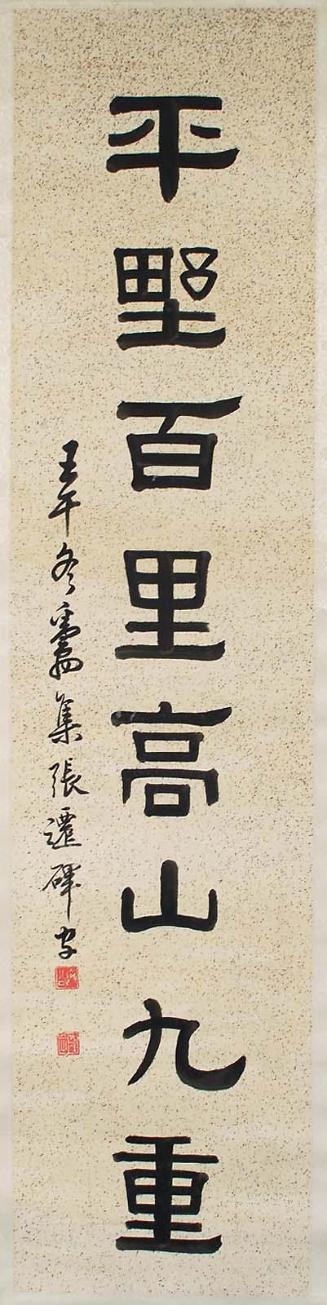 平壄百里高山九重
壬午冬集張遷碑字